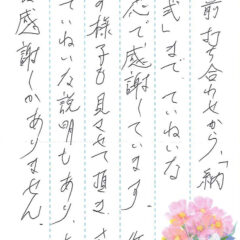 前 打ち合わせから、「納
式」まで ていねいな
応で感謝しています。
の様子も見させて頂き、
ていねいな説明もあり、
感謝しかありません。